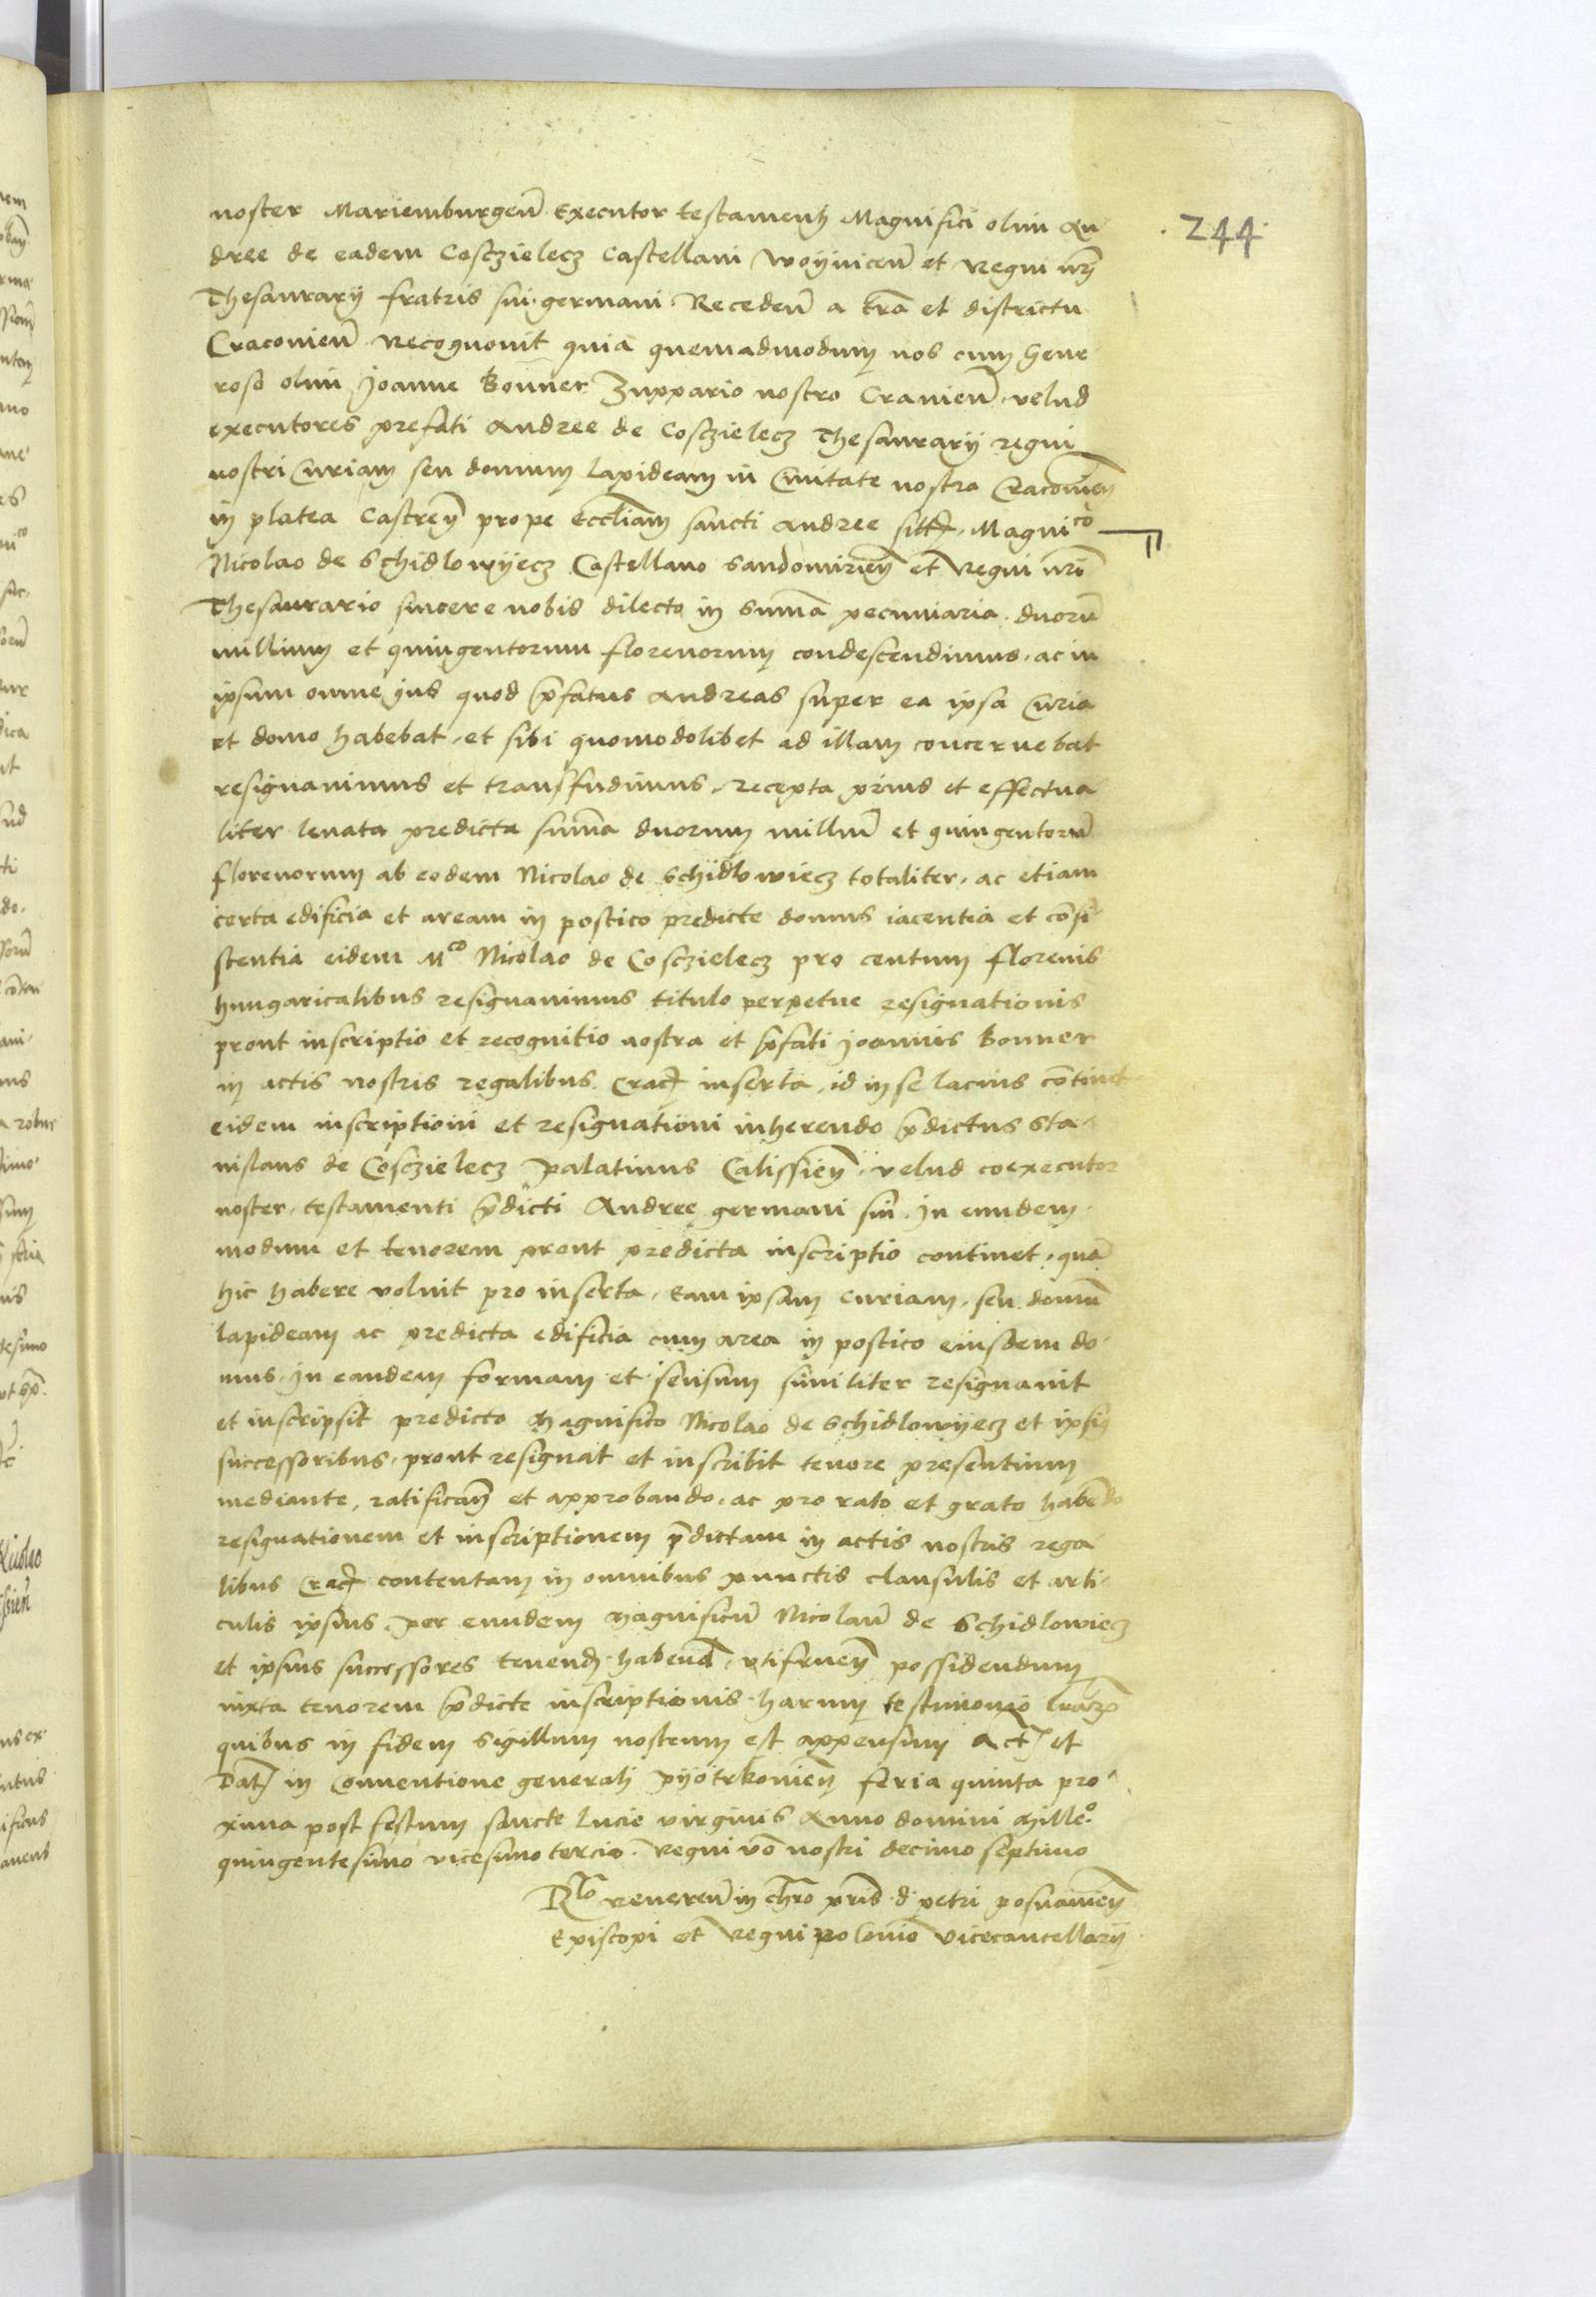 244
noster Mariemburgeñ Executor testamentj Magnifici olim An
dree de eadem Cosczielecz Castellani Woijniceñ et Regni nrj
Thesaurarij fratris sui germani Recedeñ a tr̃a et districtu
Cracovieñ recognovit quia quemadmodum nos cum Gene
roso olim Joanne Bonner Zuppario nostro Cracvieñ velud
executores prefati Andree de Cosczielecz Thesaurarij regni
nostri Curiam seu domum lapideam in Civitate nostra Cracovieñ
in platea Castreñ prope Eccl̃iam sancti Andree sitã Magnico
Nicolao de Schidlowijecz Castellano Sandomirieñ et Regni nrĩ
Thesaurario sincere nobis dilecto in sum̃a pecuniaria duorũ
millium et quingentorum florenorum condescendimus ac in
ipsum omne jus quod p̃fatus Andreas super ea ipsa Curia
et domo habebat et sibi quomodolibet ad illam concernebat
resignavimus et transfudimus recepta prius et effectua
liter levata predicta sum̃a duorum milliũ et quingentorũ
florenorum ab eodem Nicolao de Schidlowiecz totaliter ac etiam
certa edificia et aream in postico predicte domus iacentia et con̄si
stentia eidem Mco Nicolao de Cosczielecz pro centum florenis
hungaricalibus resignavimus titulo perpetue resignationis
prout inscriptio et recognitio nostra et p̃fati Joannis Bonner
in actis nostris regalibus Crac̃ inserta id in se lacius con̄tinet
eidem inscriptioni et resignationi inherendo p̃dictus Sta
nislaus de Cosczielecz Palatinus Calissieñ velud coexecutor
noster testamenti p̃dicti Andree germani sui In eundem
modum et tenorem prout predicta inscriptio continet quã
hic habere voluit pro inserta Eam ipsam curiam seu domũ
lapideam ac predicta edificia cum area in postico eiusdem do
mus In eandem formam et sensum similiter resignavit
et inscripsit predicto Magnifico Nicolao de Schidlowijecz et ipsiꝰ
successoribus prout resignat et inscribit tenore presentium
mediante ratificañ et approbando ac pro rato et grato habẽdo
resignationem et inscriptionem p̃dictam in actis nostris rega
libus Crac̃ contentam in omnibus punctis clausulis et arti
culis ipsius Per eundem Magnificũ Nicolaũ de Schidlowiecz
et ipsius successores tenend̃ habend̃ utifrueñ possidendum
iuxta tenorem p̃dicte inscriptionis harum testimonio lrarꝝ
quibus in fidem sigillum nostrum est appensum Act̃ et
Dat̃ in Conventione generali Pijotrkovieñ feria quinta pro
xima post festum sancte Lucie virginis Anno domini Milleo
quingentesimo vicesimo tercio Regni vo nostri decimo septimo
Rlo Revereñ in chro p̃ris d Petri Posnanieñ
Episcopi et Regni Polonie Vicecancellarij